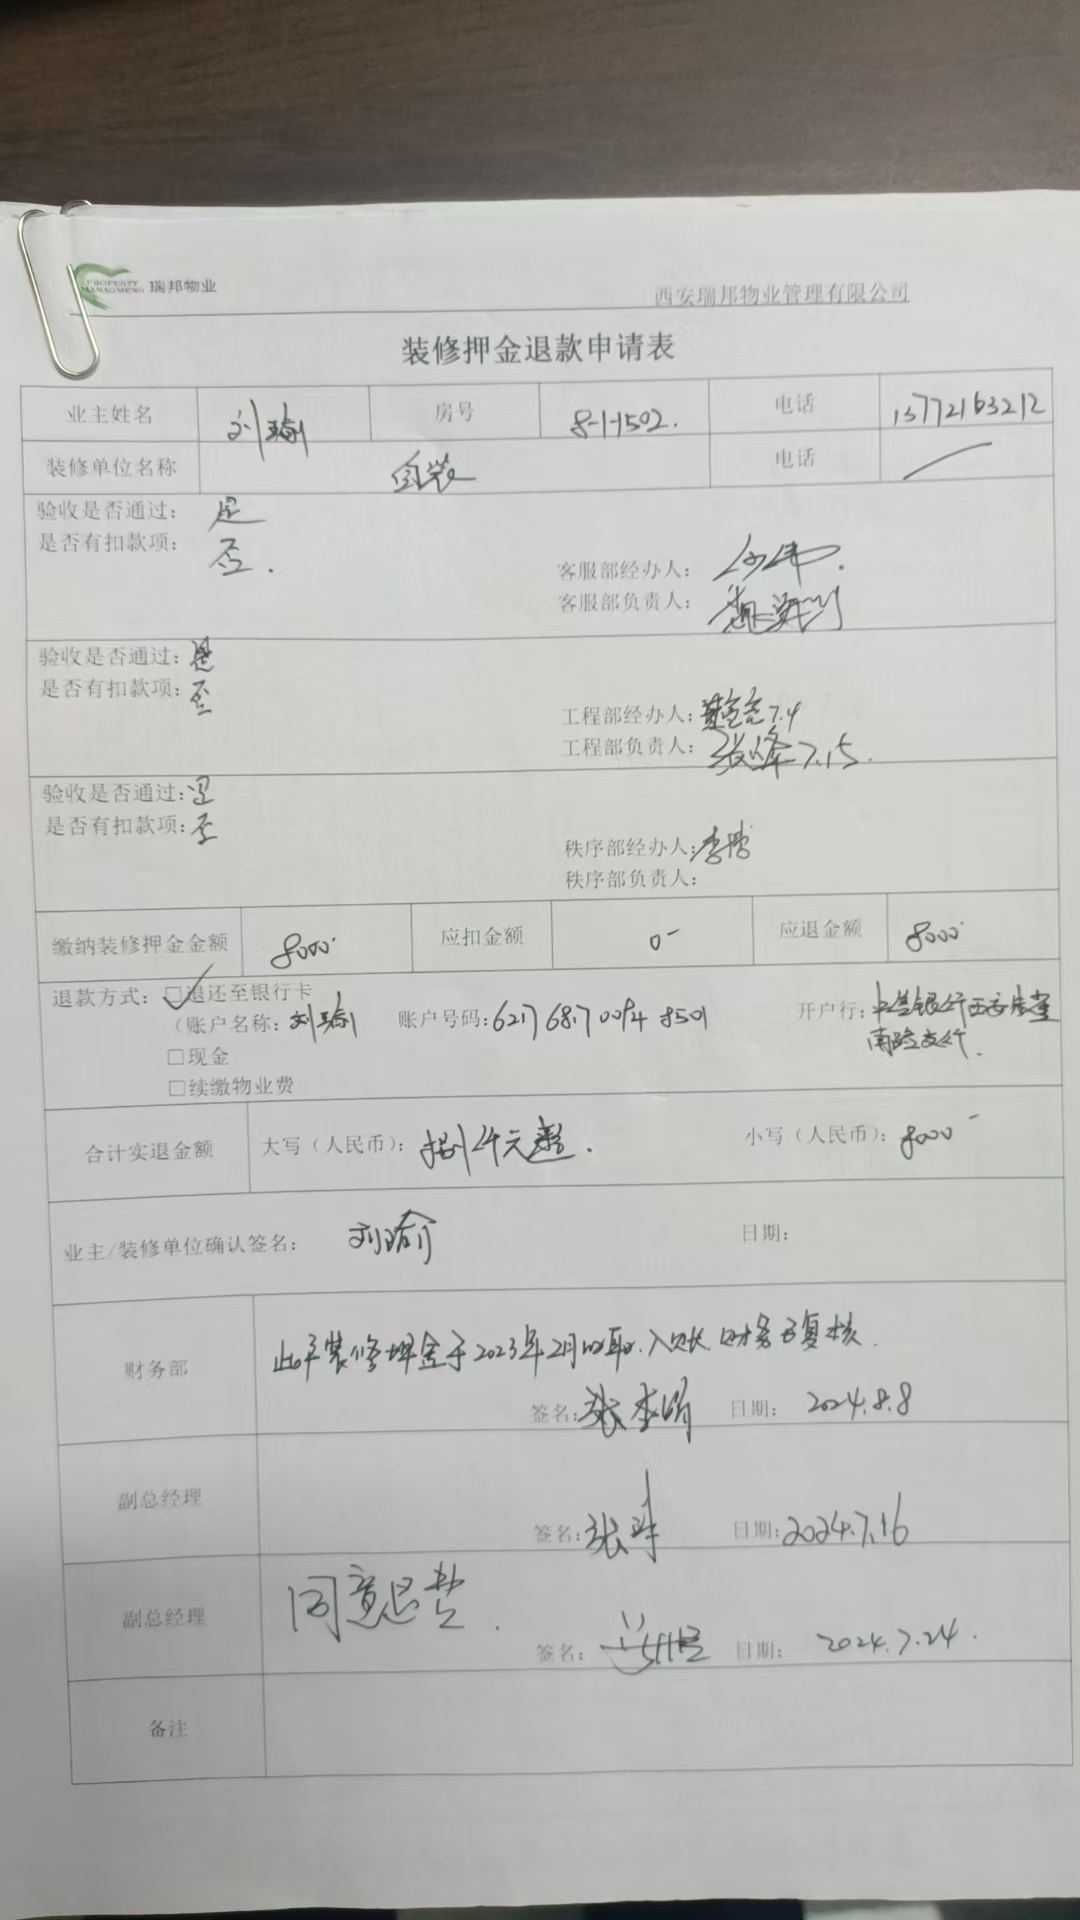 PROPERTY
MANAGMENG 瑞邦物业
西安瑞邦物业管理有限公司
装修押金退款申请表
业主姓名 刘瑜 房号 8-1-1502. 电话 13772163212
装修单位名称 自装 电话
验收是否通过: 是
是否有扣款项: 否.
客服部经办人:
客服部负责人:
验收是否通过: 是
是否有扣款项: 否
工程部经办人: 7.4
工程部负责人: 张峰 7.15.
验收是否通过: 是
是否有扣款项: 否
秩序部经办人: 李
秩序部负责人:
缴纳装修押金金额 8000 应扣金额 0- 应退金额 8000
退款方式: □退还至银行卡
(账户名称: 刘瑜 账户号码: 开户行: 中信银行西安
南路支行.
□现金
□续缴物业费
合计实退金额 大写(人民币): 捌仟元整. 小写(人民币): 8000-
业主/装修单位确认签名: 刘瑜 日期:
财务部 此户装修押金于2023年2月 入账.财务已复核.
签名: 张 日期: 2024.8.8
副总经理
签名: 张 日期: 2024.7.16
副总经理 同意退费.
签名: 日期: 2024.7.24.
备注